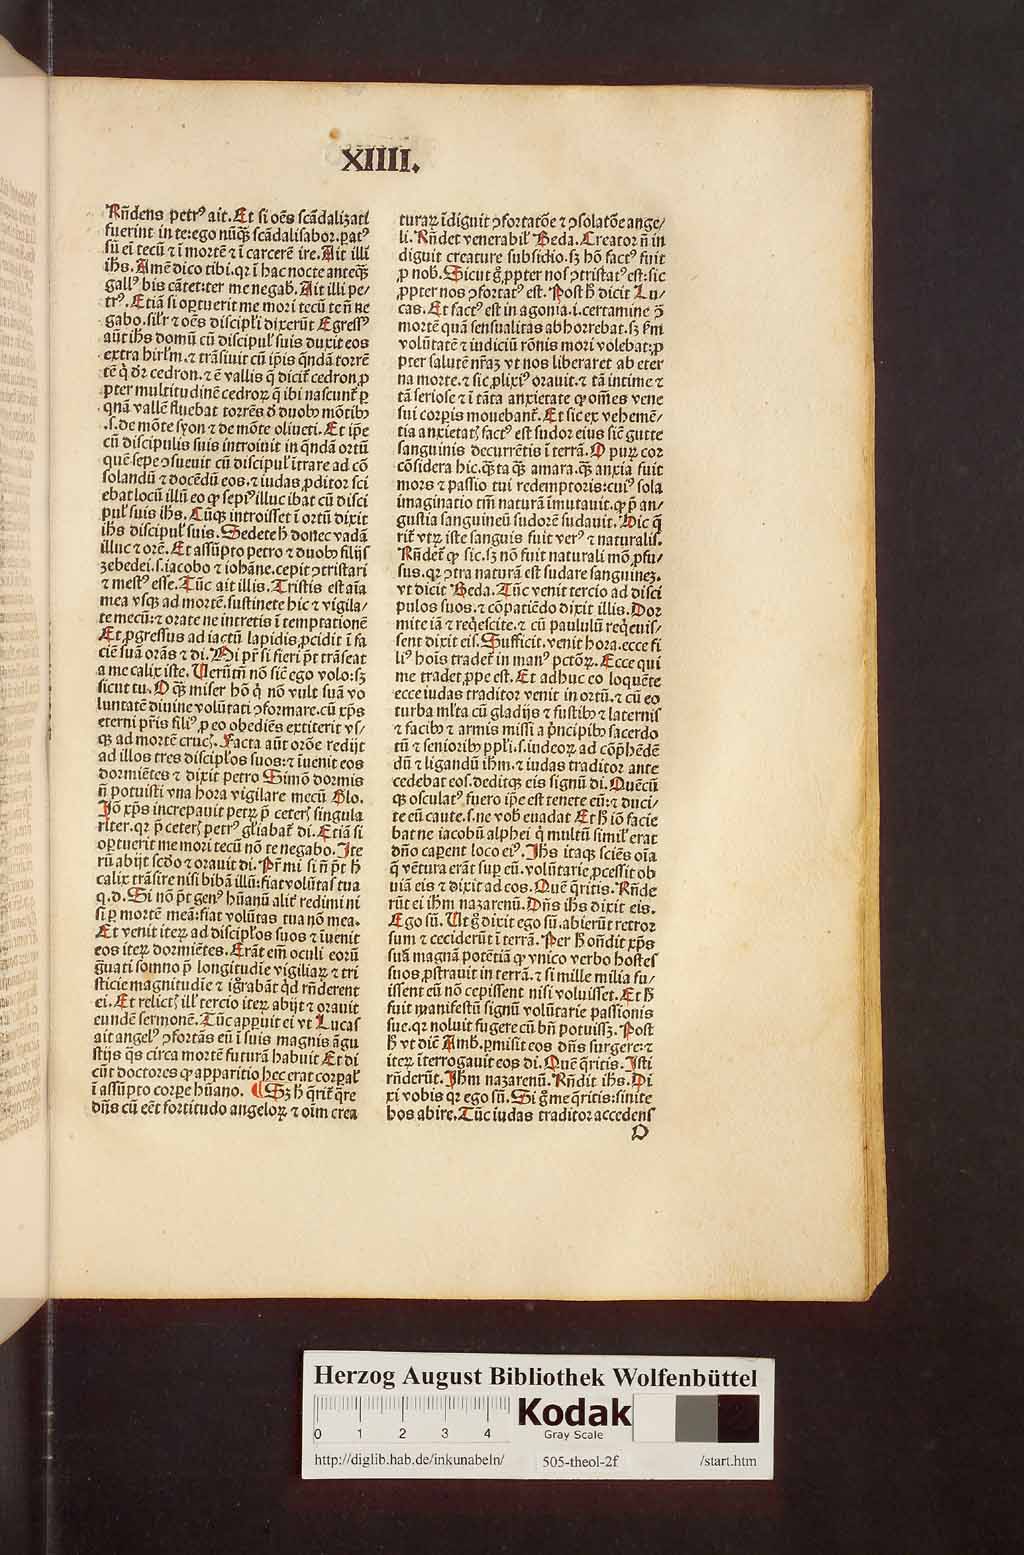 XIIII.
Rñdens petrꝰ ait. Et si oēs scādalizati
fuerint in te: ego nūq̄ꝫ scādalisabor. ꝑatꝰ
sū ei tecū ⁊ ī mortē ⁊ ī carcerē ire. Ait illi
ihs. Amē dico tibi. qꝛ ī hac nocte anteq̄ꝫ
gallꝰ bis cātet: ter me negab̄. Ait illi pe/
trꝰ. Etiā si oꝑtuerit me mori tecū te n̄ ne
gabo. silꝛ ⁊ oēs discipl̄i dixerūt Egressꝰ
aūt ihs domū cū discipul̄ suis duxit eos
extra hirl̄m. ⁊ trāsiuit cū ip̄is q̄ndā torrē
tē q̇ dꝛ cedron. ⁊ ē vallis q̄ dicit̄ cedron ꝓ
pter multitudinē cedroꝝ q̄ ibi nascunt̄ ꝑ
qnā vallē fluebat torrēs d̄ duobꝫ mōtibꝫ
.s. de mōte syon ⁊ de mōte oliueti. Et ip̄e
cū discipulis suis introiuit in q̄ndā ortū
quē sepe ↄsueuit cū discipul̄ ītrare ad cō
solandū ⁊ docēdū eos. ⁊ iudas ꝓditor sci
ebat locū illū eo ꝙ sepiꝰ illuc ibat cū disci
pul̄ suis ihs. Cūqꝫ introisset ī ortū dixit
ihs discipul̄ suis. Sedete h̄ donec vadā
illuc ⁊ orē. Et assūpto petro ⁊ duobꝫ filijs
zebedei. s. iacobo ⁊ iohāne. cepit ↄtristari
⁊ mestꝰ esse. Tūc ait illis. Tristis est aīa
mea vsqꝫ ad mortē. sustinete hic ⁊ vigila/
te mecū: ⁊ orate ne intretis ī temptationē
Et ꝓgressus ad iactū lapidis ꝓcidit ī fa
ciē suā orās ⁊ di. Mi pr̄ si fieri pt̄ trāseat
a me calix iste. Verūtn̄ nō sic̄ ego volo: sꝫ
sicut tu. O q̄ꝫ miser hō q̇ nō vult suā vo
luntatē diuine volūtati ↄformare. cū xp̄s
eterni pr̄is filiꝰ ꝓ eo obediēs extiterit vs/
qꝫ ad mortē crucꝭ. Facta aūt orōe redijt
ad illos tres discipl̄os suos: ⁊ īuenit eos
dormiētes ⁊ dixit petro Simō dormis
n̄ potuisti vna hora vigilare mecū Glo.
Iō xp̄s increpauit petꝝ p̄ ceterꝭ singula
rit̄er. qꝛ p̄ ceterꝭ petrꝰ gl̄iabat̄ di. Etiā si
oꝑtuerit me mori tecū nō te negabo. Ite
rū abijt scd̄o ⁊ orauit di. Pr̄ mi si n̄ pt̄ h̄
calix trāsire nisi bibā illū: fiat volūtas tua
q. d. Si nō pt̄ genꝰ hūanū alit̄ redimi ni
si ꝑ mortē meā: fiat volūtas tua nō mea.
Et venit iteꝝ ad discipl̄os suos ⁊ īuenit
eos iteꝝ dormiētes. Erāt em̄ oculi eorū
g̈uati somno p̄ longitudīe vigiliaꝝ ⁊ tri
sticie magnitudīe ⁊ ig̈rabāt qd̄ rn̄derent
ei. Et relictꝭ ill̄ tercio iteꝝ abijt ⁊ orauit
eundē sermonē. Tūc apꝑuit ei vt Lucas
ait angelꝰ ↄfortās eū ī suis magnis āgu
stijs q̄s circa mortē futurā habuit Et di
cūt doctores ꝙ apparitio hec erat corꝑal̄
ī assūpto corꝑe hūano. ¶ Sꝫ h̄ q̄rit̄ q̄re
dn̄s cū eēt fortitudo angeloꝝ ⁊ oīm crea
turaꝝ īdiguit ↄfortatōe ⁊ ↄsolatōe ange/
li. Rn̄det venerabil̄ Beda. Creator n̄ in
diguit creature subsidio. sꝫ hō factꝰ fuit
ꝓ nob̄. Sicut g̊ ꝓpter nos ↄtristatꝰ est: sic
ꝓpter nos ↄfortatꝰ est. Post h̄ dicit Lu/
cas. Et factꝰ est in agonia. i. certamine ↄ̄
mortē quā sensualitas abhorrebat. sꝫ fm̄
volūtatē ⁊ iudiciū rōnis mori volebat: ꝓ
pter salutē nr̄aꝫ vt nos liberaret ab eter
na morte. ⁊ sic ꝓlixiꝰ orauit. ⁊ tā intime ⁊
tā seriose ⁊ ī tāta anxietate ꝙ om̄es vene
sui corꝑis mouebant̄. Et sic ex vehemē/
tia anxietatꝭ factꝰ est sudor eius sic̄ gutte
sanguinis decurrētis ī terrā. O puꝝ cor
cōsidera hic. q̄ꝫ ta q̄ꝫ amara. q̄ꝫ anxia fuit
mors ⁊ passio tui redemptoris: cuiꝰ sola
imaginatio tm̄ naturā īmutauit. ꝙ p̄ an/
gustia sanguineū sudorē sudauit. Hic q̄
rit̄ vtꝝ iste sanguis fuit verꝰ ⁊ naturalis.
Rn̄det̄ ꝙ sic. sꝫ nō fuit naturali mō ꝓfu/
sus. qꝛ ↄtra naturā est sudare sanguineꝫ.
vt dicit Beda. Tūc venit tercio ad disci
pulos suos. ⁊ cōpatiēdo dixit illis. Dor
mite iā ⁊ req̇escite. ⁊ cū paululū req̇euis/
sent dixit eis. Sufficit. venit hora. ecce fi
liꝰ hoīs tradet̄ in manꝰ pctōꝝ. Ecce qui
me tradet ꝓpe est. Et adhuc eo loquēte
ecce iudas traditor venit in ortū. ⁊ cū eo
turba ml̄ta cū gladijs ⁊ fustibꝫ ⁊ laternis
⁊ facibꝫ ⁊ armis missi a p̄ncipibꝫ sacerdo
tū ⁊ senioribꝫ ppl̄i. s. iudeoꝝ ad cōp̄hēdē
dū ⁊ ligandū ihm̄. ⁊ iudas traditor ante
cedebat eos. deditqꝫ eis signū di. Quēcū
qꝫ osculatꝰ fuero ip̄e est tenete eū: ⁊ duci/
te eū caute. s. ne vob̄ euadat Et h̄ iō facie
bat ne iacobū alphei q̇ multū simil̄ erat
dn̄o caꝑent loco eiꝰ. Ihs itaqꝫ sciēs oīa
q̄ vētura erāt suꝑ eū. volūtarie ꝓcessit ob
uiā eis ⁊ dixit ad eos. Quē q̄ritis. Rn̄de
rūt ei ihm̄ nazarenū. Dn̄s ihs dixit eis.
Ego sū. Vt g̊ dixit ego sū. abierūt retror
sum ⁊ ceciderūt ī terrā. Per h̄ on̄dit xp̄s
suā magnā potētiā ꝙ vnico verbo hostes
suos ꝓstrauit in terrā. ⁊ si mille milia fu/
issent eū nō cepissent nisi voluisset. Et h̄
fuit manifestū signū volūtarie passionis
sue. qꝛ noluit fugere cū bn̄ potuissꝫ. Post
h̄ vt diē Amb. ꝑmisit eos dn̄s surgere: ⁊
iteꝝ īterrogauit eos di. Quē q̄ritis. Isti
rn̄derūt. Ihm̄ nazarenū. Rn̄dit ihs. Di
xi vobis qꝛ ego sū. Si g̊ me q̄ritis: sinite
hos abire. Tūc iudas traditor accedens
D
Herzog August Bibliothek Wolfenbüttel
0 1 2 3 4
Kodak
Gray Scale
http://diglib.hab.de/inkunabeln/ 505-theol-2f /start.htm